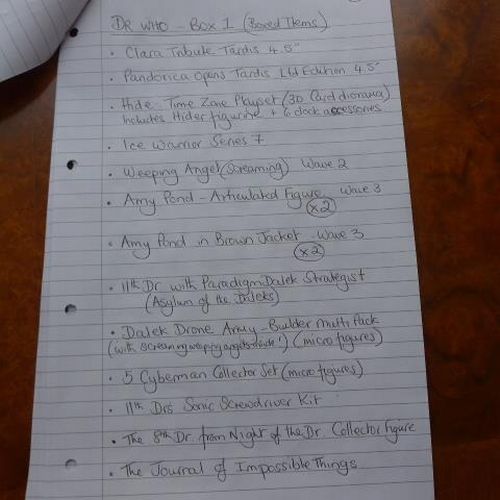 DR WHO - Box 1 (Boxed Items)
• Clara Tribute Tardis 4.5"
• Pandorica Opens Tardis Ltd Edition 4.5"
• Hide - Time Zone Playset (3D Card diorama)
Includes Hider figurine + 6 clock accessories
• Ice Warrior Series 7
• Weeping Angel (Screaming) Wave 2
• Amy Pond - Articulated Figure Wave 3
x2
• Amy Pond in Brown Jacket - Wave 3
x2
• 11th Dr with Paradigm Dalek Strategist
(Asylum of the Daleks)
• Dalek Drone Army - Builder Multi Pack
(with screaming weeping angel) (micro figures)
• 5 Cyberman Collector Set (micro figures)
• 11th Drs Sonic Screwdriver Kit
• The 8th Dr. from Night of the Dr. Collector figure
• The Journal of Impossible Things